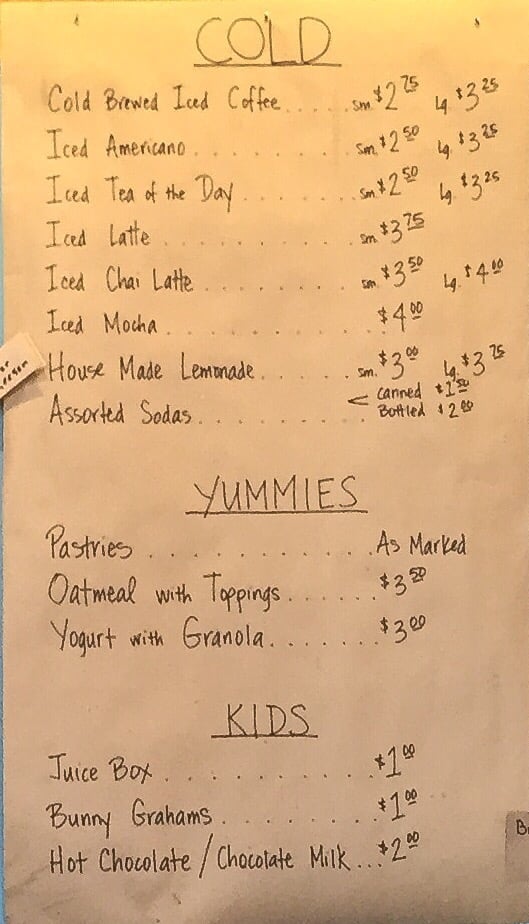 COLD
Cold Brewed Iced Coffee..... sm. $2.75 lg. $3.25
Iced Americano........ sm. $2.50 lg. $3.25
Iced Tea of the Day....... sm. $2.50 lg. $3.25
Iced Latte.......... sm. $3.75
Iced Chai Latte........ sm. $3.50 lg. $4.00
Iced Mocha........... $4.00
House Made Lemonade..... sm. $3.00 lg. $3.75
Assorted Sodas......... < canned $1.50
Bottled $2.00
YUMMIES
Pastries........... As Marked
Oatmeal with Toppings...... $3.50
Yogurt with Granola....... $3.00
KIDS
Juice Box.......... $1.00
Bunny Grahams........ $1.00
Hot Chocolate / Chocolate Milk... $2.00